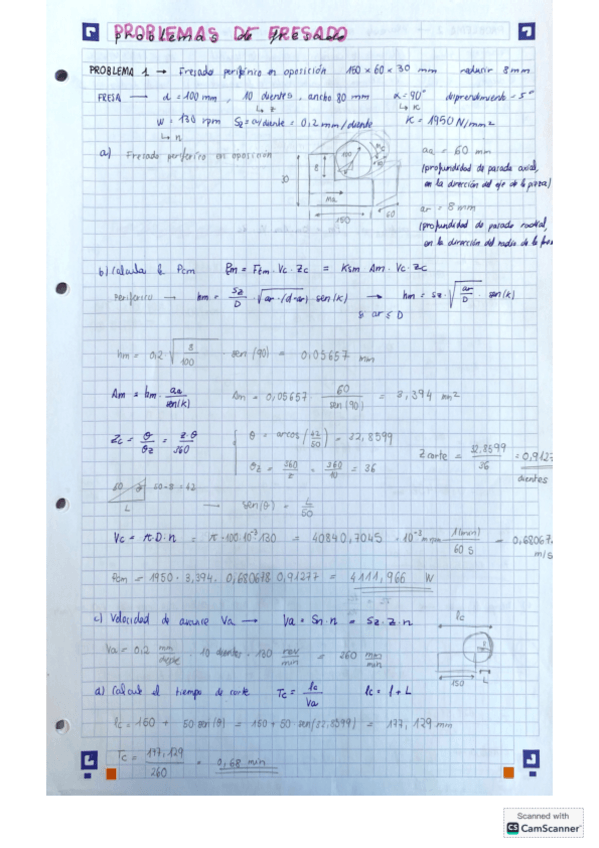 PROBLEMAS DE FRESADO
PROBLEMA 1 → Fresado periférico en oposición 150 × 60 × 30 mm reducir 8mm
FRESA → d = 100 mm, 10 dientes, ancho 80 mm α = 90° desprendimiento = 5°
↳ z ↳ K
w = 130 rpm Sz = a/diente = 0,2 mm/diente K = 1950 N/mm²
↳ n
a) Fresado periférico en oposición
aa = 60 mm
(profundidad de pasada axial,
en la dirección del eje de la pieza)
ar = 8 mm
(profundidad de pasada radial,
en la dirección del radio de la
30 8 100 150 60
b) Calcula la Pcm Pcm = Ftm · Vc · Zc = Ksm · Am · Vc · Zc
Periférico → hm = Sz/D · √ar · (d-ar) · sen(K) → hm = sz · √ar/D · sen(K)
8 ar ≤ D
hm = 0,2 · √8/100 · sen (90) = 0,05657 mm
Am = hm · aa/sen(K) Am = 0,05657 · 60/sen(90) = 3,394 mm²
Zc = θ/θz = z·θ/360 θ = arcos (42/50) = 32,8599
θz = 360/z = 360/10 = 36
Z corte = 32,8599/36 = 0,9127
dientes
50 θ 50-8 = 42
L
→ sen(θ) = L/50
Vc = π D · n = π · 100 · 10⁻³ · 130 = 40840,7045 · 10⁻³ · 1(min)/60 s = 0,68067
m/s
Pcm = 1950 · 3,394 · 0,680678 · 0,91277 = 4111,966 W
c) Velocidad de avance Va → Va = Sn · n = Sz · Z · n
Va = 0,2 mm/diente · 10 dientes · 130 rev/min = 260 mm/min
lc
150 L
d) Calcule el tiempo de corte Tc = lc/Va lc = l + L
lc = 150 + 50 sen(θ) = 150 + 50 sen(32,8599) = 177,129 mm
Tc = 177,129/260 = 0,68 min
Scanned with
CS CamScanner